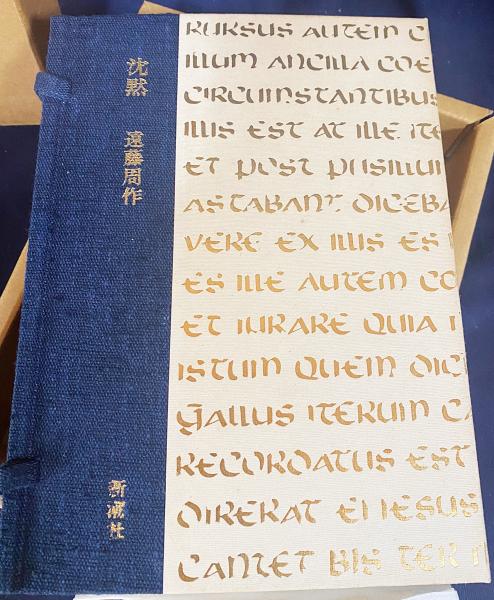 沈黙 遠藤周作
新潮社
RURSUS AUTEM C
ILLUM ANCILLA COE
CIRCUMSTANTIBUS
ILLIS EST AT ILLE ITE
ET POST PUSILLUM
ASTABANT DICEBA
VERE EX ILLIS ES
ES ILLE AUTEM CO
ET IURARE QUIA
ISTUM QUEM DIC
GALLUS ITERUM CA
RECORDATUS EST
DIXERAT EI IESUS
CANTET BIS TER